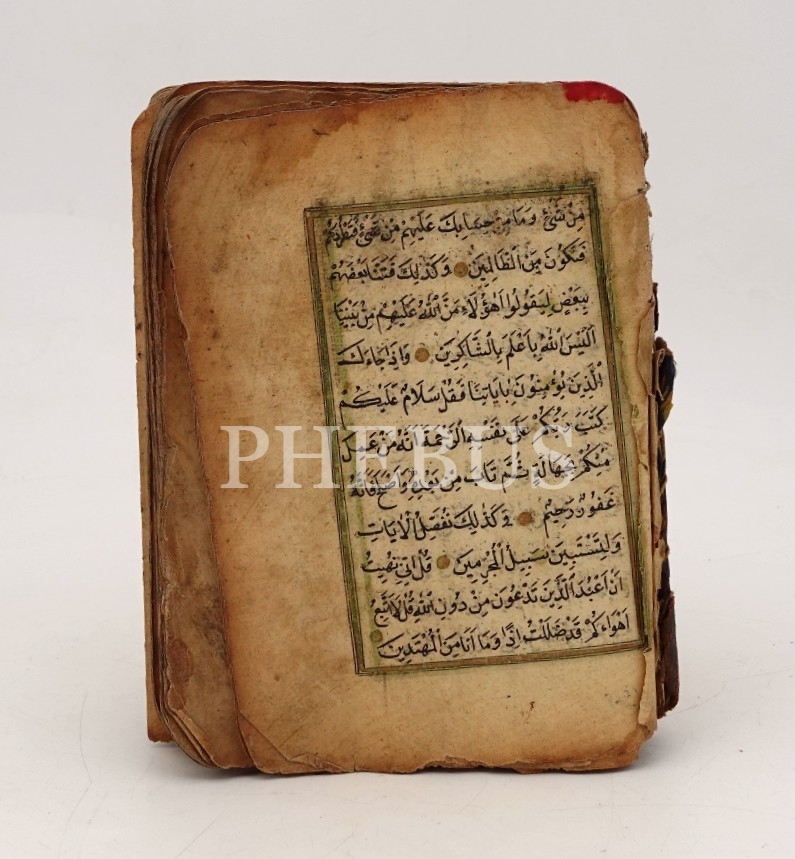 مِنْ شَيْءٍ وَمَا مِنْ حِسَابِكَ عَلَيْهِمْ مِنْ شَيْءٍ فَتَطْرُدَهُمْ
فَتَكُونَ مِنَ الظَّالِمِينَ وَكَذٰلِكَ فَتَنَّا بَعْضَهُمْ
بِبَعْضٍ لِيَقُولُوا اَهٰؤُلَاءِ مَنَّ اللّٰهُ عَلَيْهِمْ مِنْ بَيْنِنَا
اَلَيْسَ اللّٰهُ بِاَعْلَمَ بِالشَّاكِرِينَ وَاِذَا جَاءَكَ
الَّذِينَ يُؤْمِنُونَ بِاٰيَاتِنَا فَقُلْ سَلَامٌ عَلَيْكُمْ
كَتَبَ رَبُّكُمْ عَلٰى نَفْسِهِ الرَّحْمَةَ اَنَّهُ مَنْ عَمِلَ
مِنْكُمْ بِجَهَالَةٍ ثُمَّ تَابَ مِنْ بَعْدِهِ وَاَصْلَحَ فَاَنَّهُ
غَفُورٌ رَحِيمٌ وَكَذٰلِكَ نُفَصِّلُ الْاٰيَاتِ
وَلِتَسْتَبِينَ سَبِيلُ الْمُجْرِمِينَ قُلْ اِنِّي نُهِيتُ
اَنْ اَعْبُدَ الَّذِينَ تَدْعُونَ مِنْ دُونِ اللّٰهِ قُلْ لَا اَتَّبِعُ
اَهْوَاءَكُمْ قَدْ ضَلَلْتُ اِذًا وَمَا اَنَا مِنَ الْمُهْتَدِينَ
PHEBUS